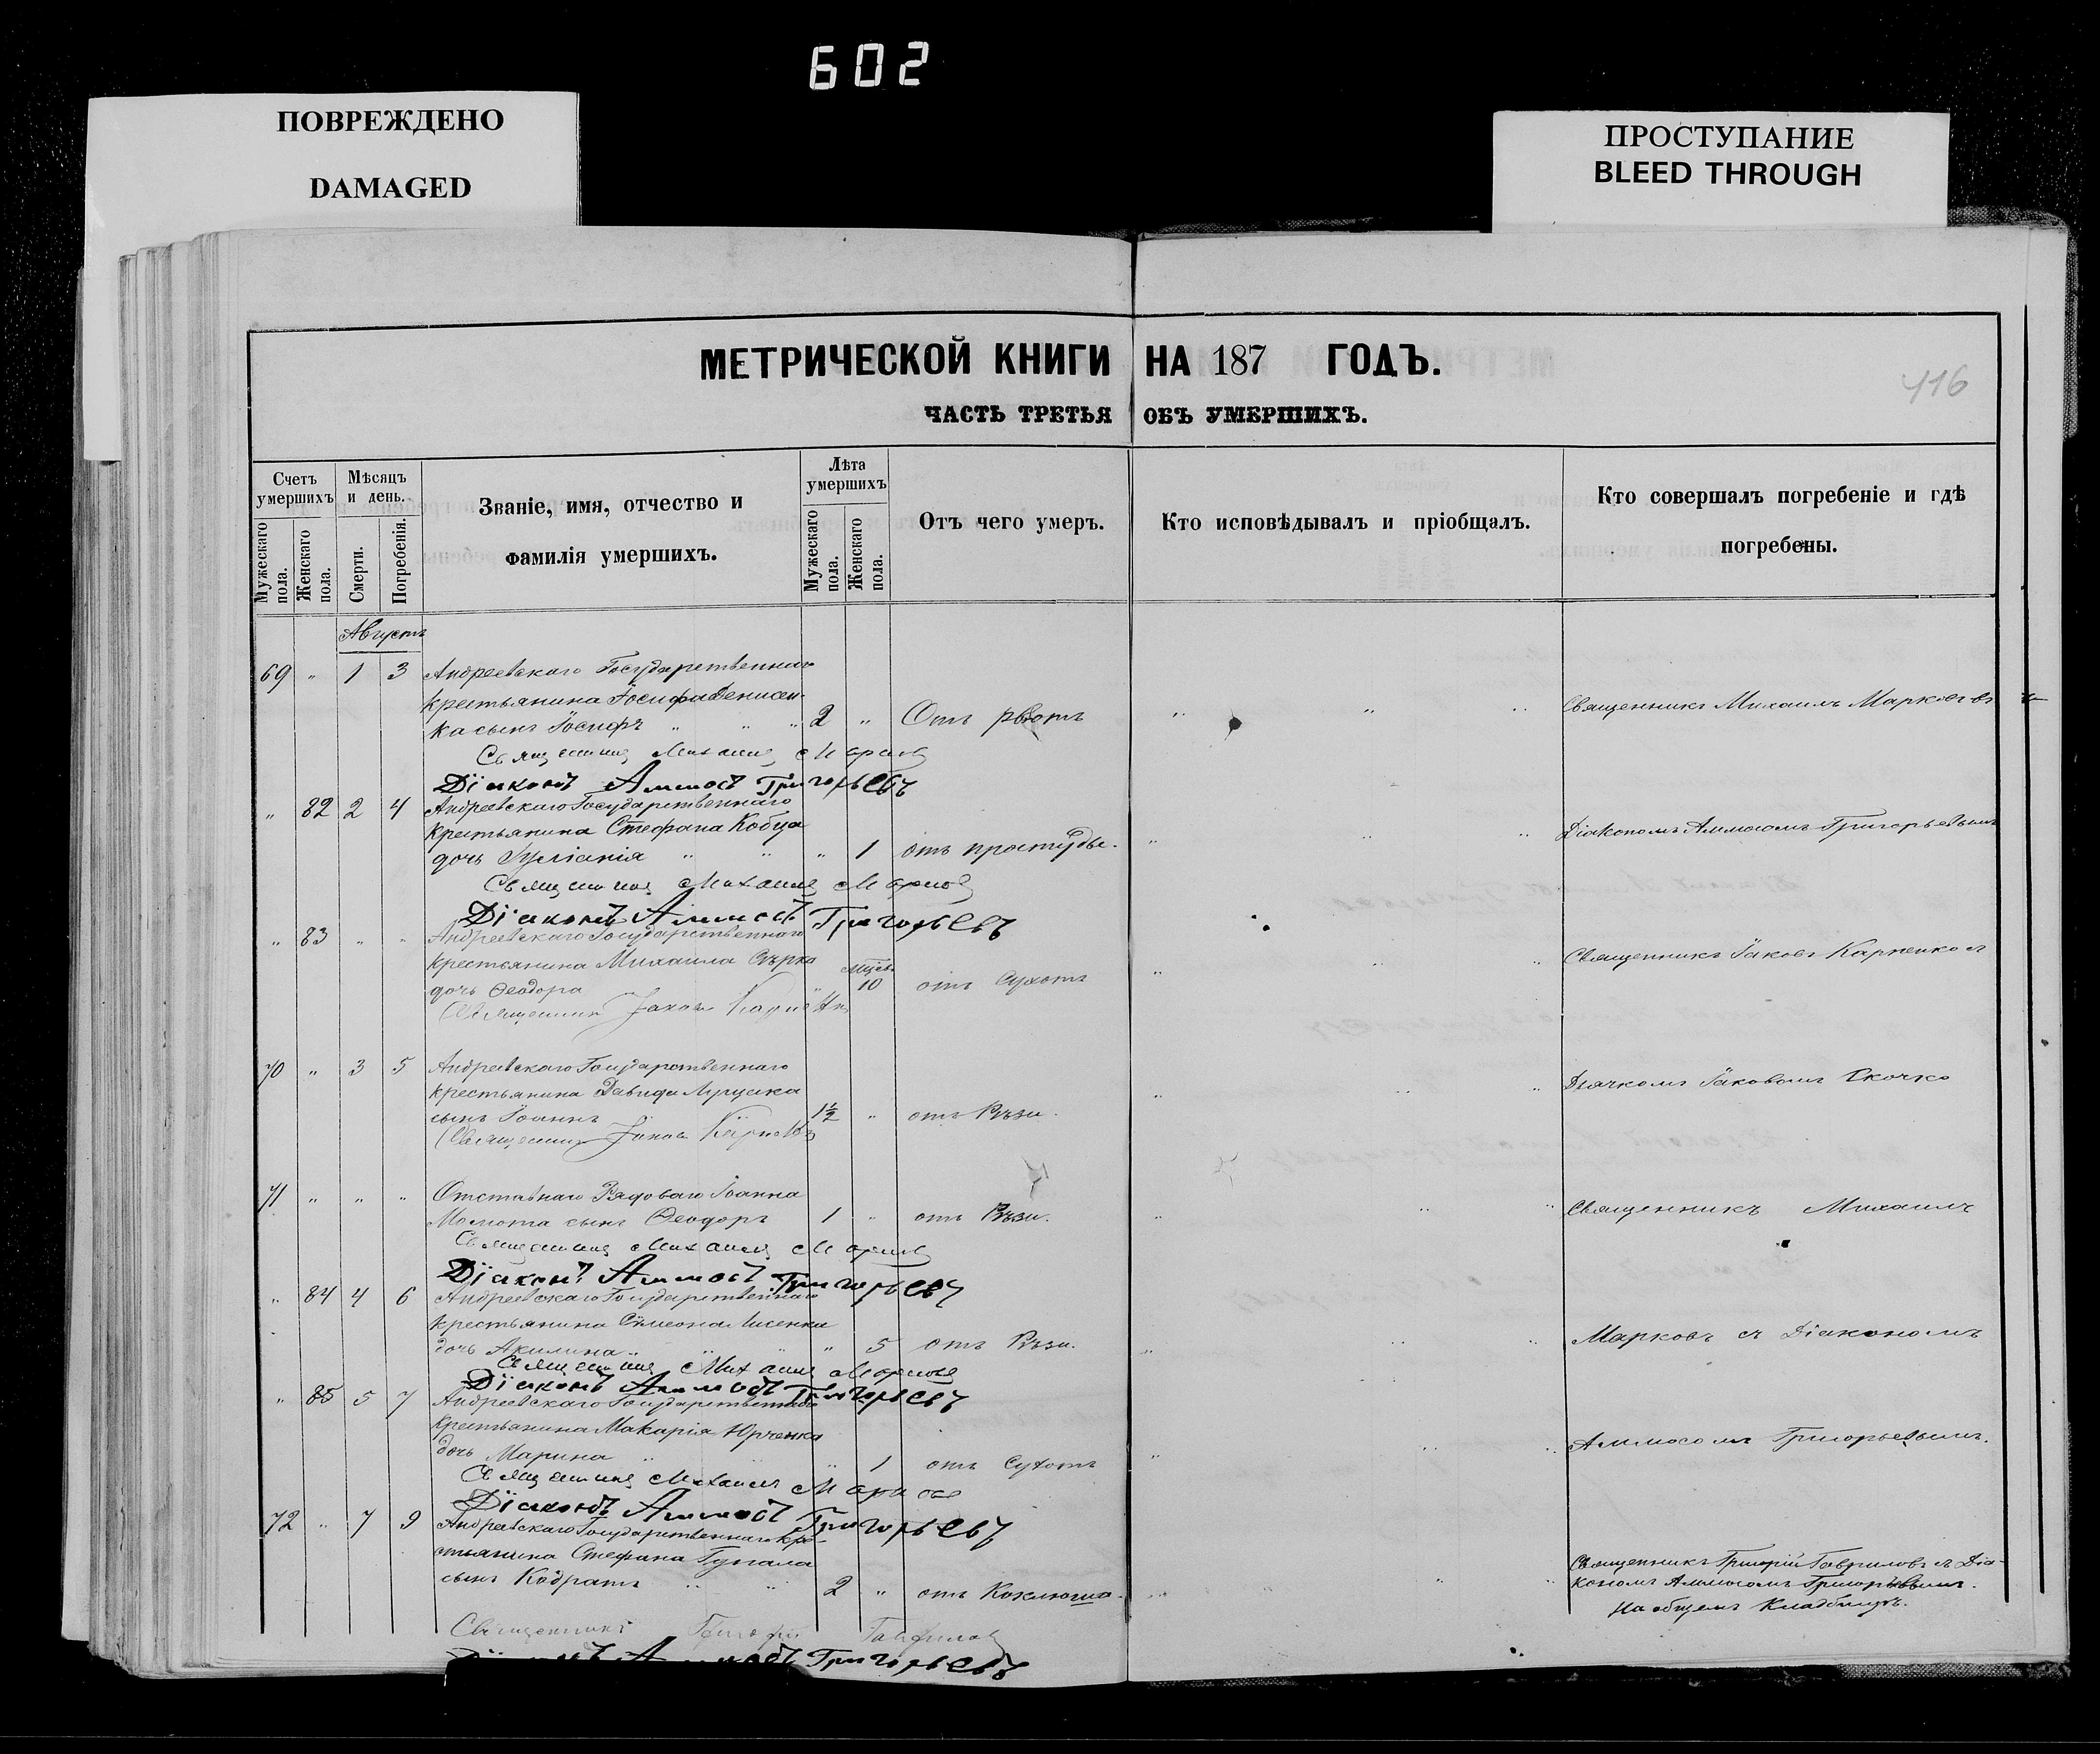 602
ПОВРЕЖДЕНО
DAMAGED
ПРОСТУПАНИЕ
BLEED THROUGH
МЕТРИЧЕСКОЙ КНИГИ НА 187 ГОДЪ.
416
ЧАСТЬ ТРЕТЬЯ ОБЪ УМЕРШИХЪ.
Счетъ умершихъ
Мужескаго пола.
Женскаго пола.
Мѣсяцъ и день.
Смерти.
Погребенія.
Званіе, имя, отчество и
фамилія умершихъ.
Лѣта умершихъ
Мужескаго пола.
Женскаго пола.
Отъ чего умеръ.
Кто исповѣдывалъ и пріобщалъ.
Кто совершалъ погребеніе и гдѣ
погребены.
Августъ
69 " 1 3 Андреевскаго Государственнаго
крестьянина Іосифа Денисен-
ка сынъ Іосифъ " " " 2 " Отъ рвотъ " " " Священникъ Михаилъ Марковъ съ
Священникъ Михаилъ Марковъ
Діаконъ Аммосъ Григорьевъ
" 82 2 4 Андреевскаго Государственнаго
крестьянина Стефана Кобца
дочь Іуліанія " " " 1 отъ простуды. " " " Діакономъ Аммосомъ Григорьевымъ
Священникъ Михаилъ Марковъ
Діаконъ Аммосъ Григорьевъ
" 83 " " Андреевскаго Государственнаго
крестьянина Михаила Сѣрка
дочь Феодора " мцсв. 10 отъ Сухотъ " " " Священникъ Іаковъ Карпенко съ
Священникъ Іаковъ
70 " 3 5 Андреевскаго Государственнаго
крестьянина Давида Луценка
сынъ Іоаннъ 1½ " отъ Рѣзи. " " " Дьячкомъ Іаковомъ Скочко
Священникъ Іаковъ
71 " " " Отставнаго Рядоваго Іоанна
Момота сынъ Феодоръ 1 " отъ Рѣзи. " " " Священникъ Михаилъ
Священникъ Михаилъ Марковъ
Діаконъ Аммосъ Григорьевъ
" 84 4 6 Андреевскаго Государственнаго
крестьянина Сѵмеона Лисенка
дочь Акилина " " " 5 отъ Рѣзи. " " " Марковъ съ Діакономъ
Священникъ Михаилъ Марковъ
Діаконъ Аммосъ Григорьевъ
" 85 5 7 Андреевскаго Государственнаго
крестьянина Макарія Юрченка
дочь Марина " " " 1 отъ Сухотъ " " " Аммосомъ Григорьевымъ.
Священникъ Михаилъ Марковъ
Діаконъ Аммосъ Григорьевъ
72 " 7 9 Андреевскаго Государственнаго кре-
стьянина Стефана
сынъ Кодратъ " " 2 " отъ Коклюша. " " " Священникъ Григорій Гавриловъ съ Діа-
кономъ Аммосомъ Григорьевымъ.
На общемъ Кладбищѣ.
Священникъ Григорій Гавриловъ
Діаконъ Аммосъ Григорьевъ